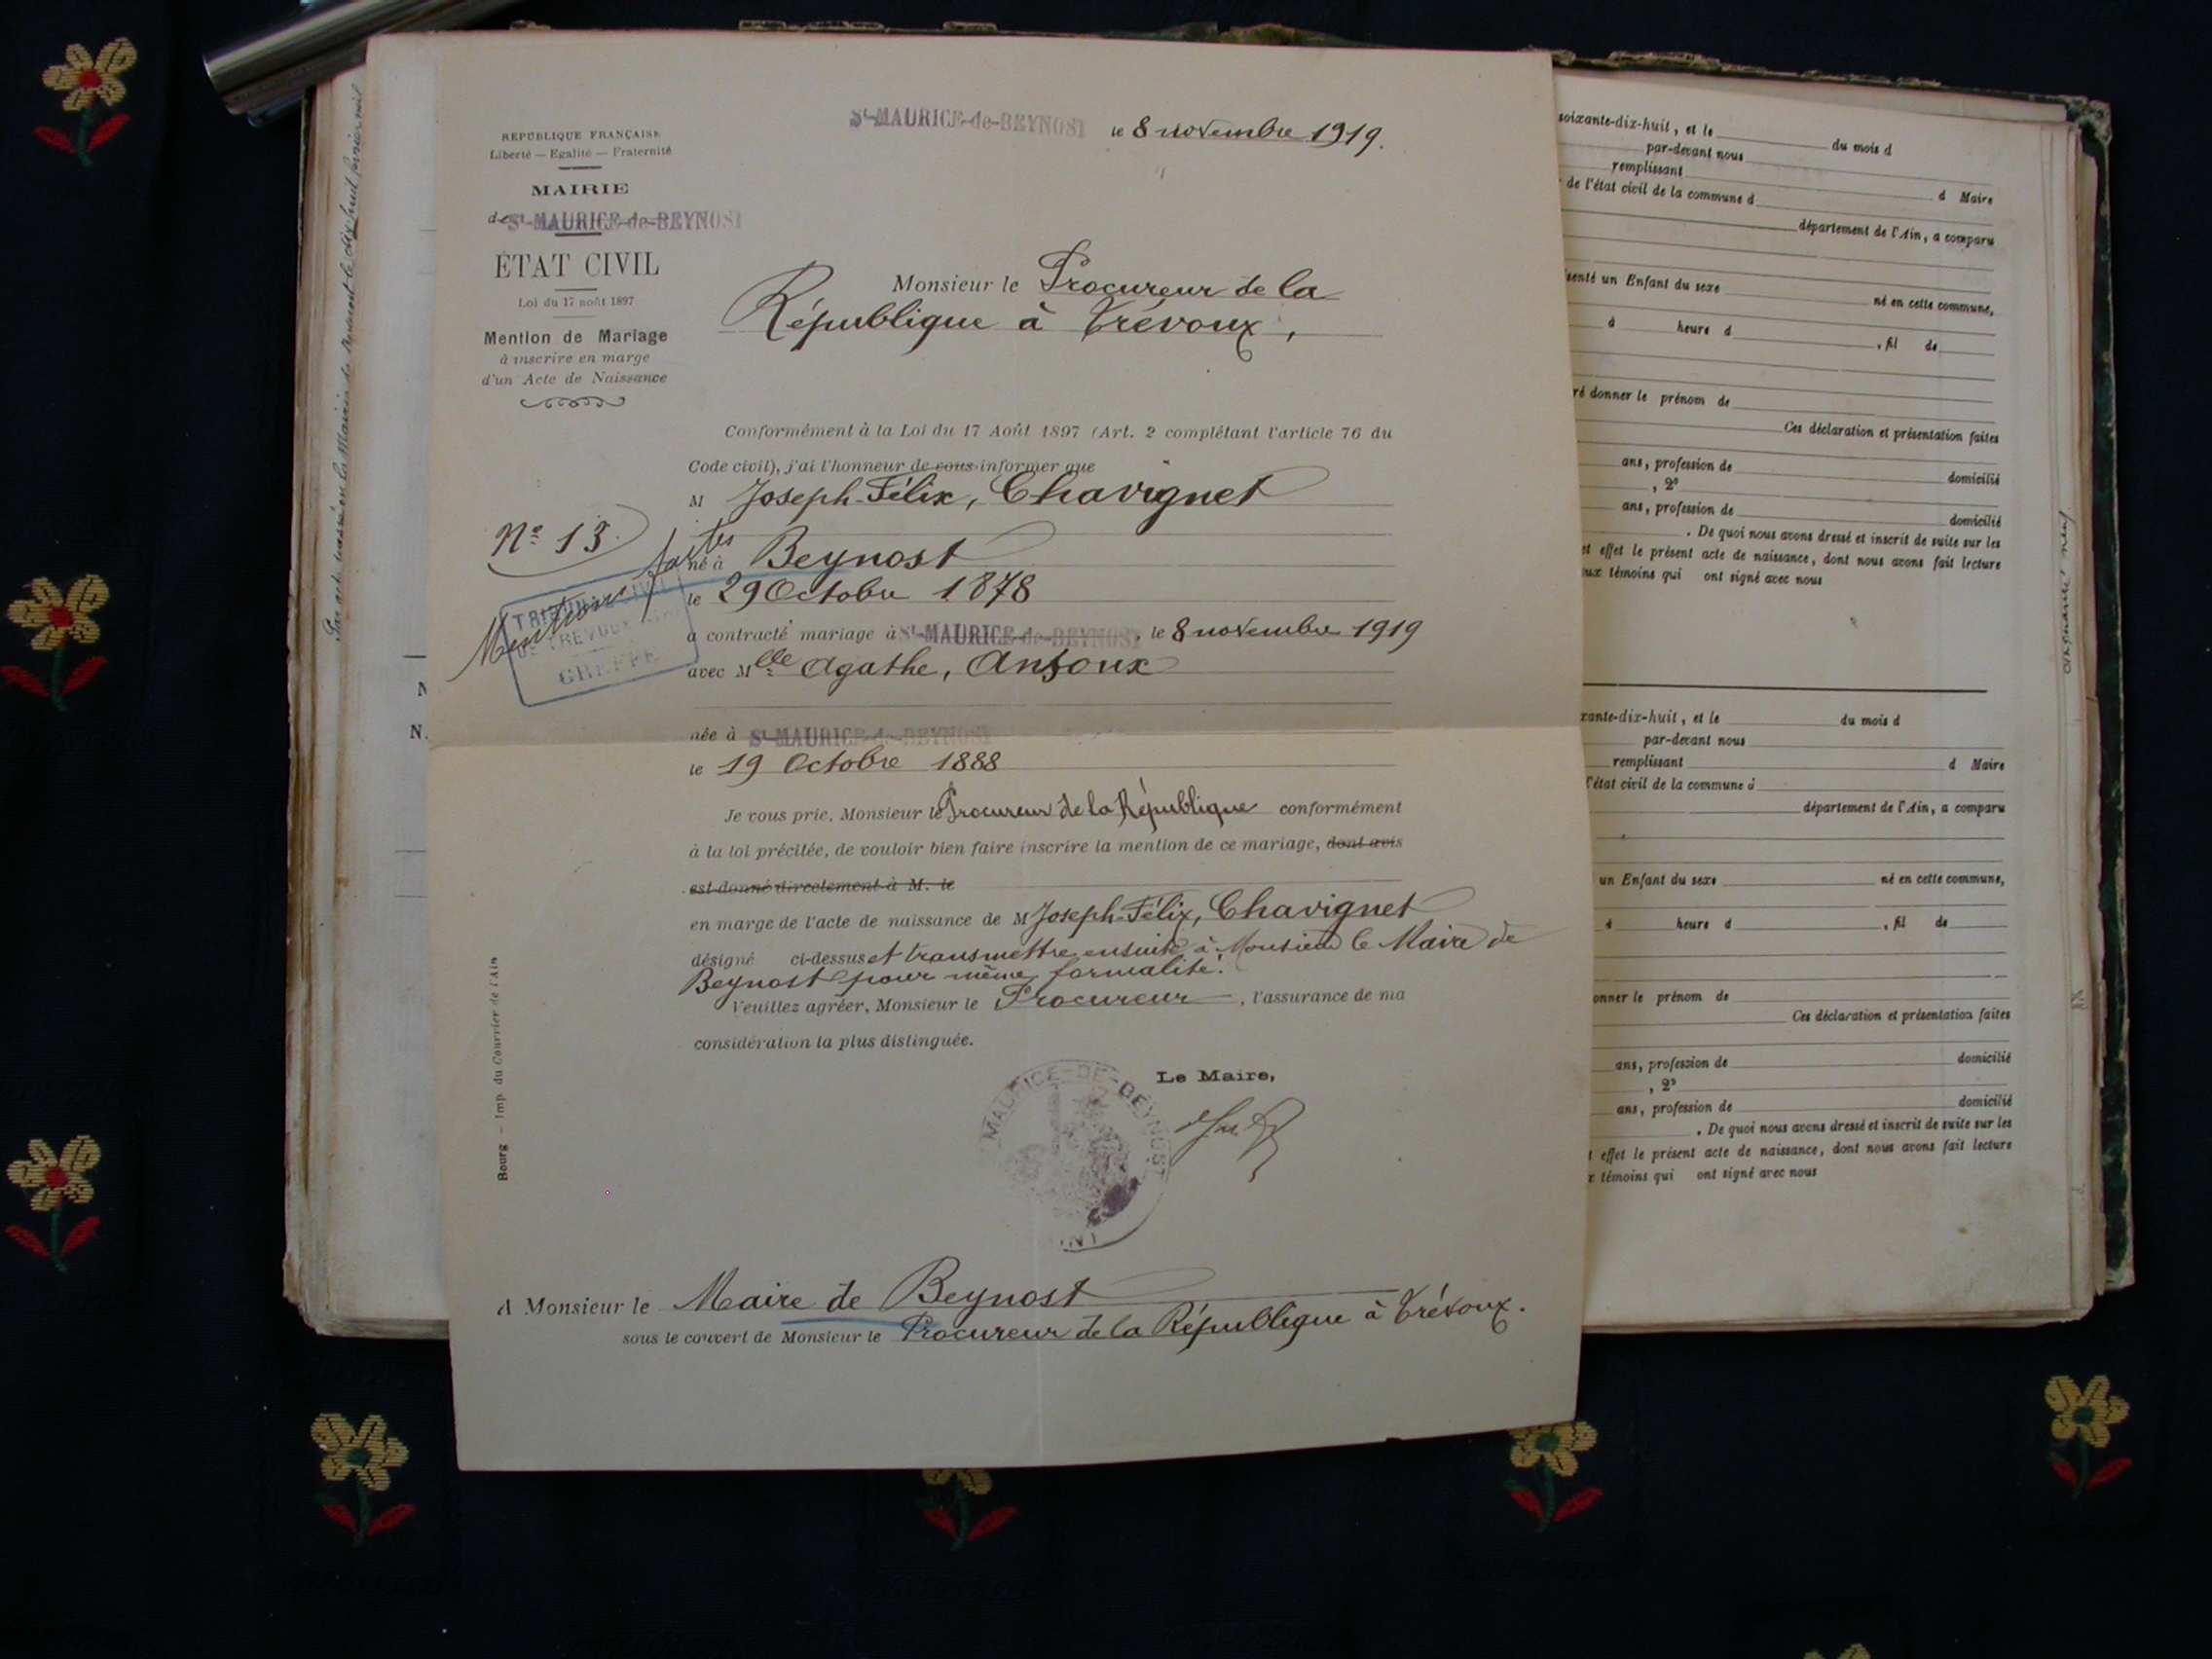 St-MAURICE-de-BEYNOST le 8 novembre 1919.
RÉPUBLIQUE FRANÇAISE
Liberté — Egalité — Fraternité
MAIRIE
de St-MAURICE-de-BEYNOST
ÉTAT CIVIL
Loi du 17 août 1897
Mention de Mariage
à inscrire en marge
d'un Acte de Naissance
Monsieur le Procureur de la
République à Trévoux,
Conformément à la Loi du 17 Août 1897 (Art. 2 complétant l'article 76 du
Code civil), j'ai l'honneur de vous informer que
M Joseph-Félix, Chavignet
N° 13
Mentions faites
TRIBUNAL CIVIL
DE TREVOUX
GREFFE
né à Beynost
le 29 Octobre 1878
a contracté mariage à St-MAURICE-de-BEYNOST, le 8 novembre 1919
avec Mlle Agathe, Ansoux
née à St-MAURICE-de-BEYNOST
le 19 Octobre 1888
Je vous prie, Monsieur le Procureur de la République conformément
à la loi précitée, de vouloir bien faire inscrire la mention de ce mariage, dont avis
est donné directement à M. le
en marge de l'acte de naissance de M Joseph-Félix, Chavignet
désigné ci-dessus et transmettre ensuite à Monsieur le Maire de
Beynost pour même formalité.
Veuillez agréer, Monsieur le Procureur, l'assurance de ma
considération la plus distinguée.
Le Maire,
MAURICE-DE-BEYNOST
Bourg — Imp. du Courrier de l'Ain
A Monsieur le Maire de Beynost
sous le couvert de Monsieur le Procureur de la République à Trévoux.
soixante-dix-huit, et le du mois d
par-devant nous
remplissant
de l'état civil de la commune d d Maire
département de l'Ain, a comparu
senté un Enfant du sexe né en cette commune,
à heure d , fil de
ré donner le prénom de
Ces déclaration et présentation faites
ans, profession de domicilié
, 2°
ans, profession de domicilié
. De quoi nous avons dressé et inscrit de suite sur les
et effet le présent acte de naissance, dont nous avons fait lecture
aux témoins qui ont signé avec nous
xante-dix-huit, et le du mois d
par-devant nous
remplissant d Maire
l'état civil de la commune d
département de l'Ain, a comparu
un Enfant du sexe né en cette commune,
à heure d , fil de
onner le prénom de
Ces déclaration et présentation faites
ans, profession de domicilié
, 2°
ans, profession de domicilié
. De quoi nous avons dressé et inscrit de suite sur les
t effet le présent acte de naissance, dont nous avons fait lecture
x témoins qui ont signé avec nous